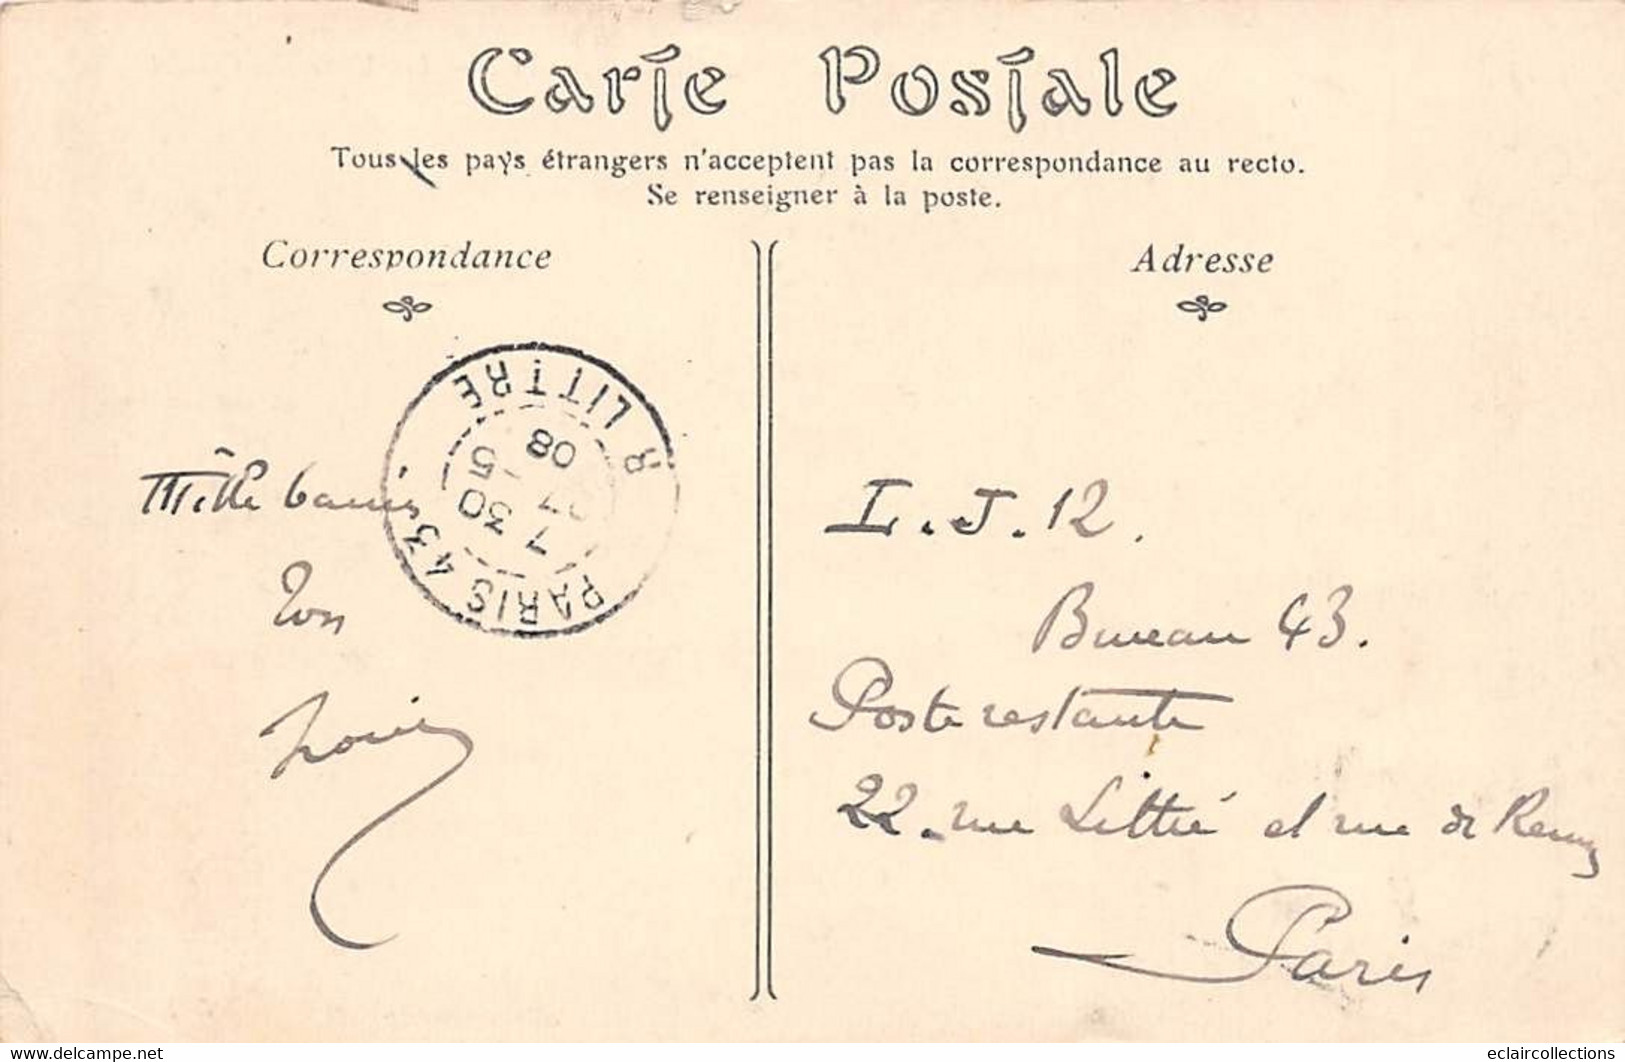 Carte Postale
Tous les pays étrangers n'acceptent pas la correspondance au recto.
Se renseigner à la poste.
Correspondance
Adresse
R. LITTRE
PARIS 43
7 30
5
08
Mille
Ton
Louis
L. J. 12.
Bureau 43.
Poste restante
22. rue Littré et rue de Rennes
Paris
eclaircollections
www.delcampe.net